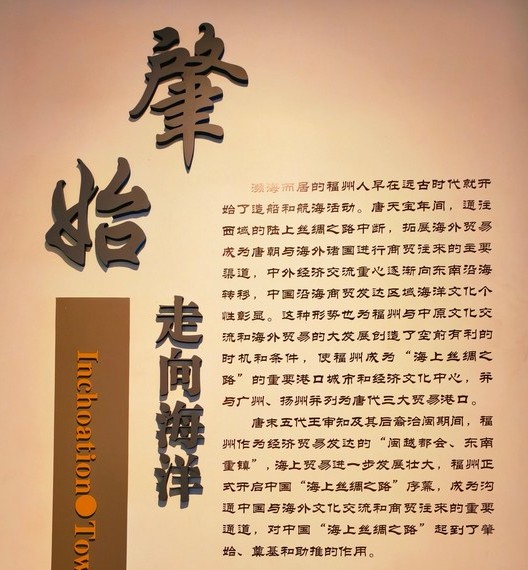 肇始
走向海洋
Inchoation●Tow
濒海而居的福州人早在远古时代就开
始了造船和航海活动。唐天宝年间，通往
西域的陆上丝绸之路中断，拓展海外贸易
成为唐朝与海外诸国进行商贸往来的主要
渠道，中外经济交流重心逐渐向东南沿海
转移，中国沿海商贸发达区域海洋文化个
性彰显。这种形势也为福州与中原文化交
流和海外贸易的大发展创造了空前有利的
时机和条件，使福州成为“海上丝绸之
路”的重要港口城市和经济文化中心，并
与广州、扬州并列为唐代三大贸易港口。
唐末五代王审知及其后裔治闽期间，福
州作为经济贸易发达的“闽越都会、东南
重镇”，海上贸易进一步发展壮大，福州正
式开启中国“海上丝绸之路”序幕，成为沟
通中国与海外文化交流和商贸往来的重要
通道，对中国“海上丝绸之路”起到了肇
始、奠基和助推的作用。